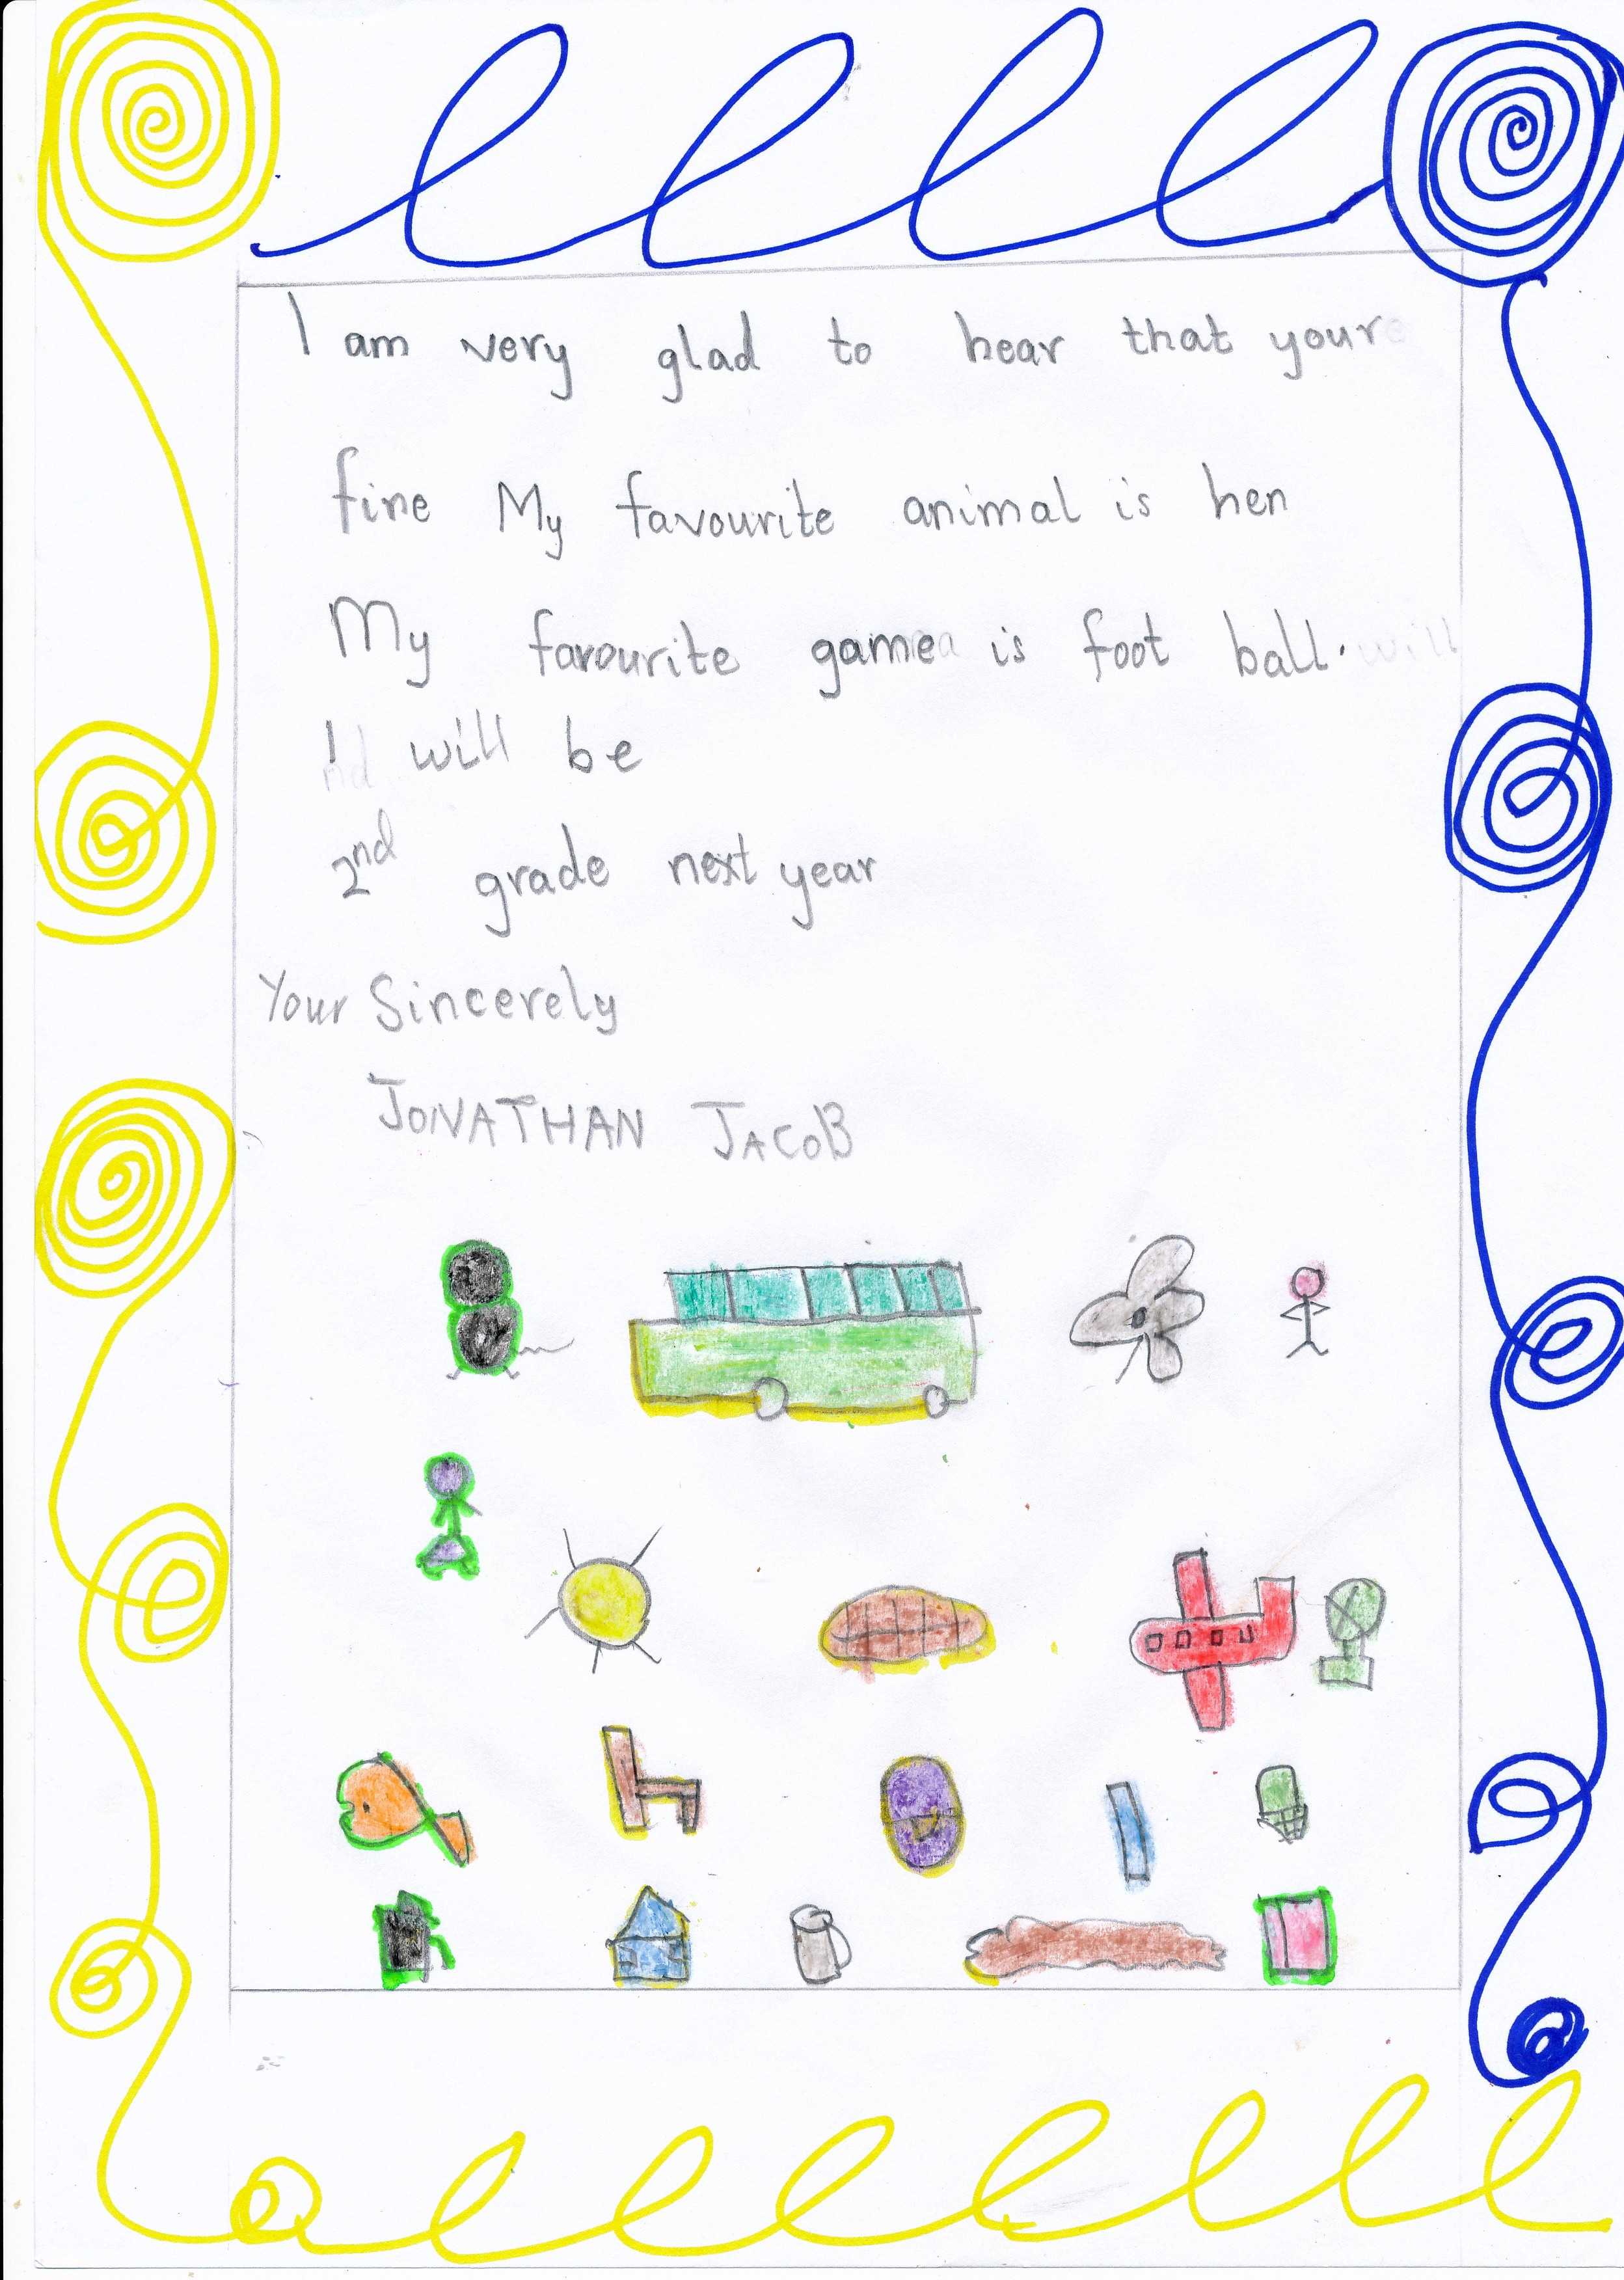 I am very glad to hear that your
fine My favourite animal is hen
My favourite game is foot ball.
I will be
2nd grade next year
Your Sincerely
JONATHAN JACOB